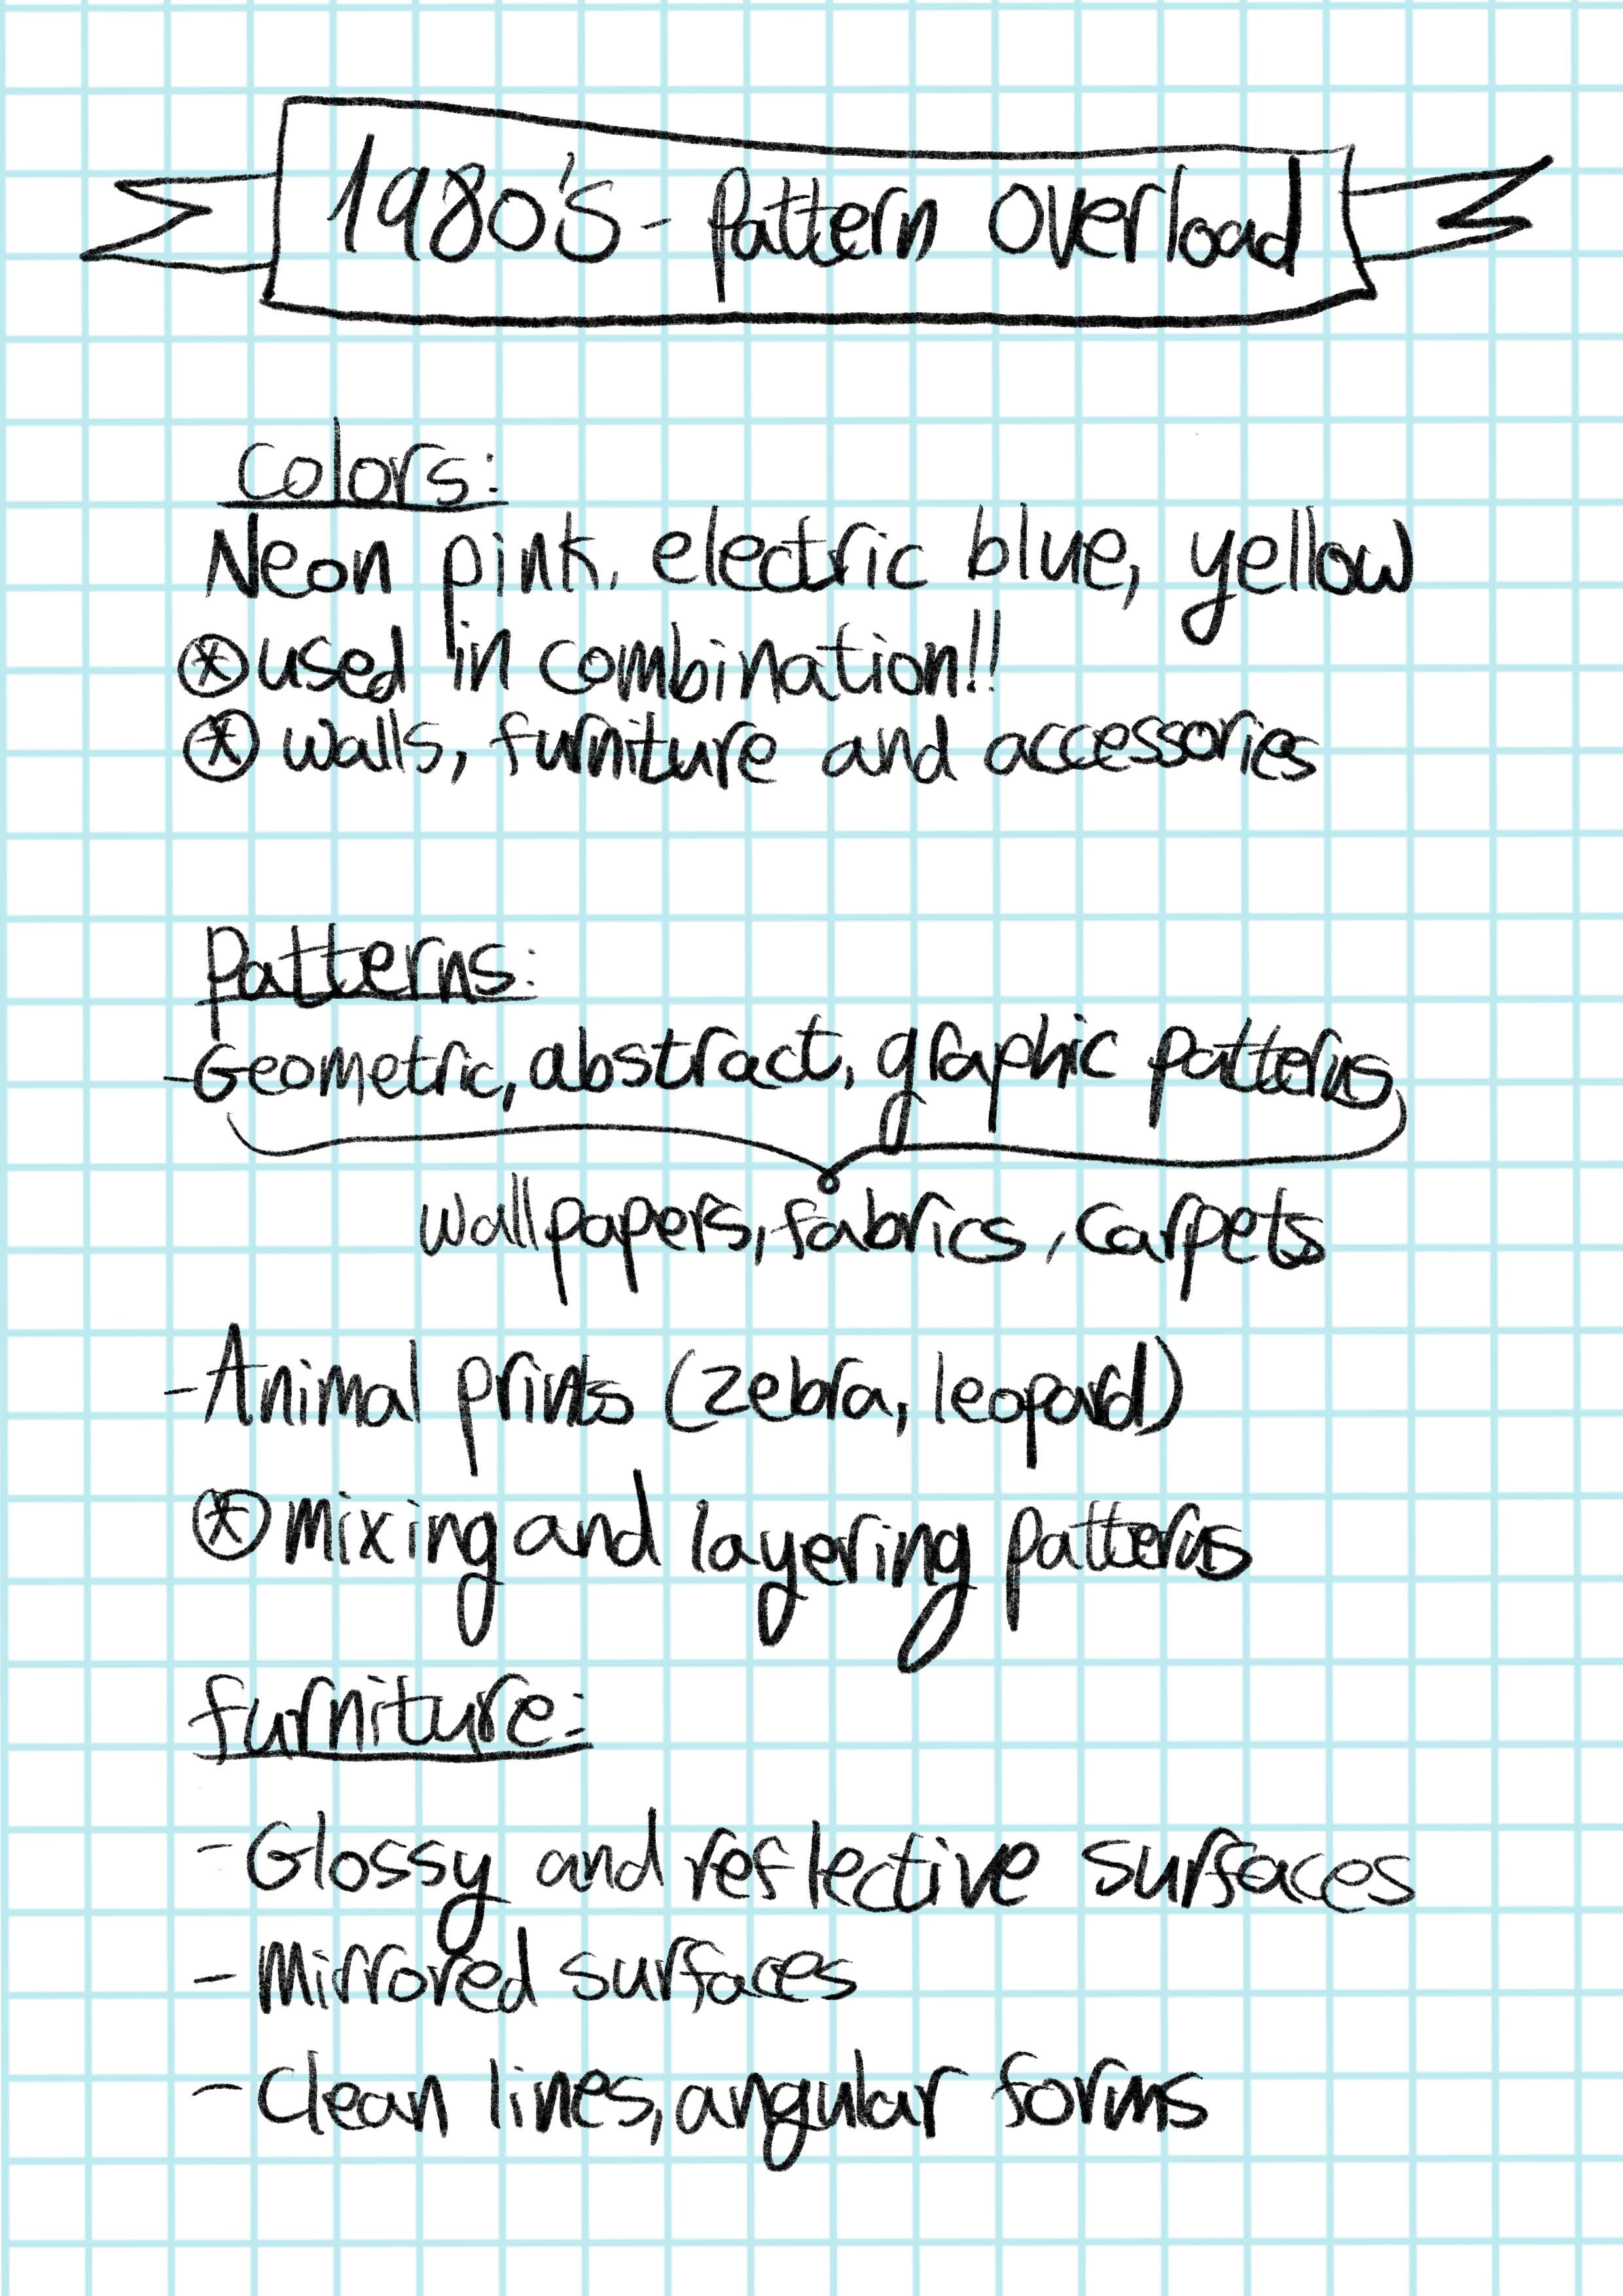 1980's - pattern overload
Colors:
Neon pink, electric blue, yellow
⊛ used in combination!!
⊛ walls, furniture and accessories
Patterns:
- Geometric, abstract, graphic patterns
wallpapers, fabrics, carpets
- Animal prints (zebra, leopard)
⊛ mixing and layering patterns
furniture:
- Glossy and reflective surfaces
- Mirrored surfaces
- Clean lines, angular forms